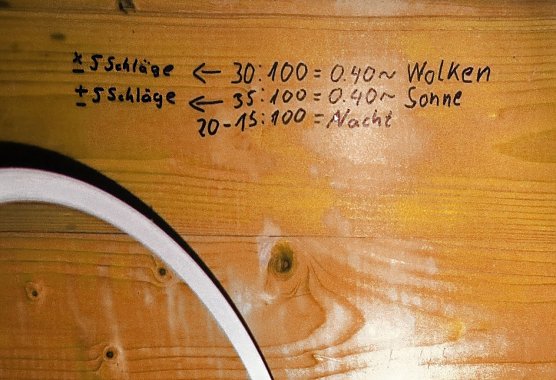 ± 5 Schläge ← 30:100 = 0.40~ Wolken
± 5 Schläge ← 35:100 = 0.40~ Sonne
20-15:100 = Nacht